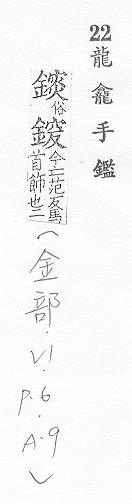 22 龍龕手鑑
錟俗鋄今亡范反馬首飾也二
(金部.VI.P.6.A.9)